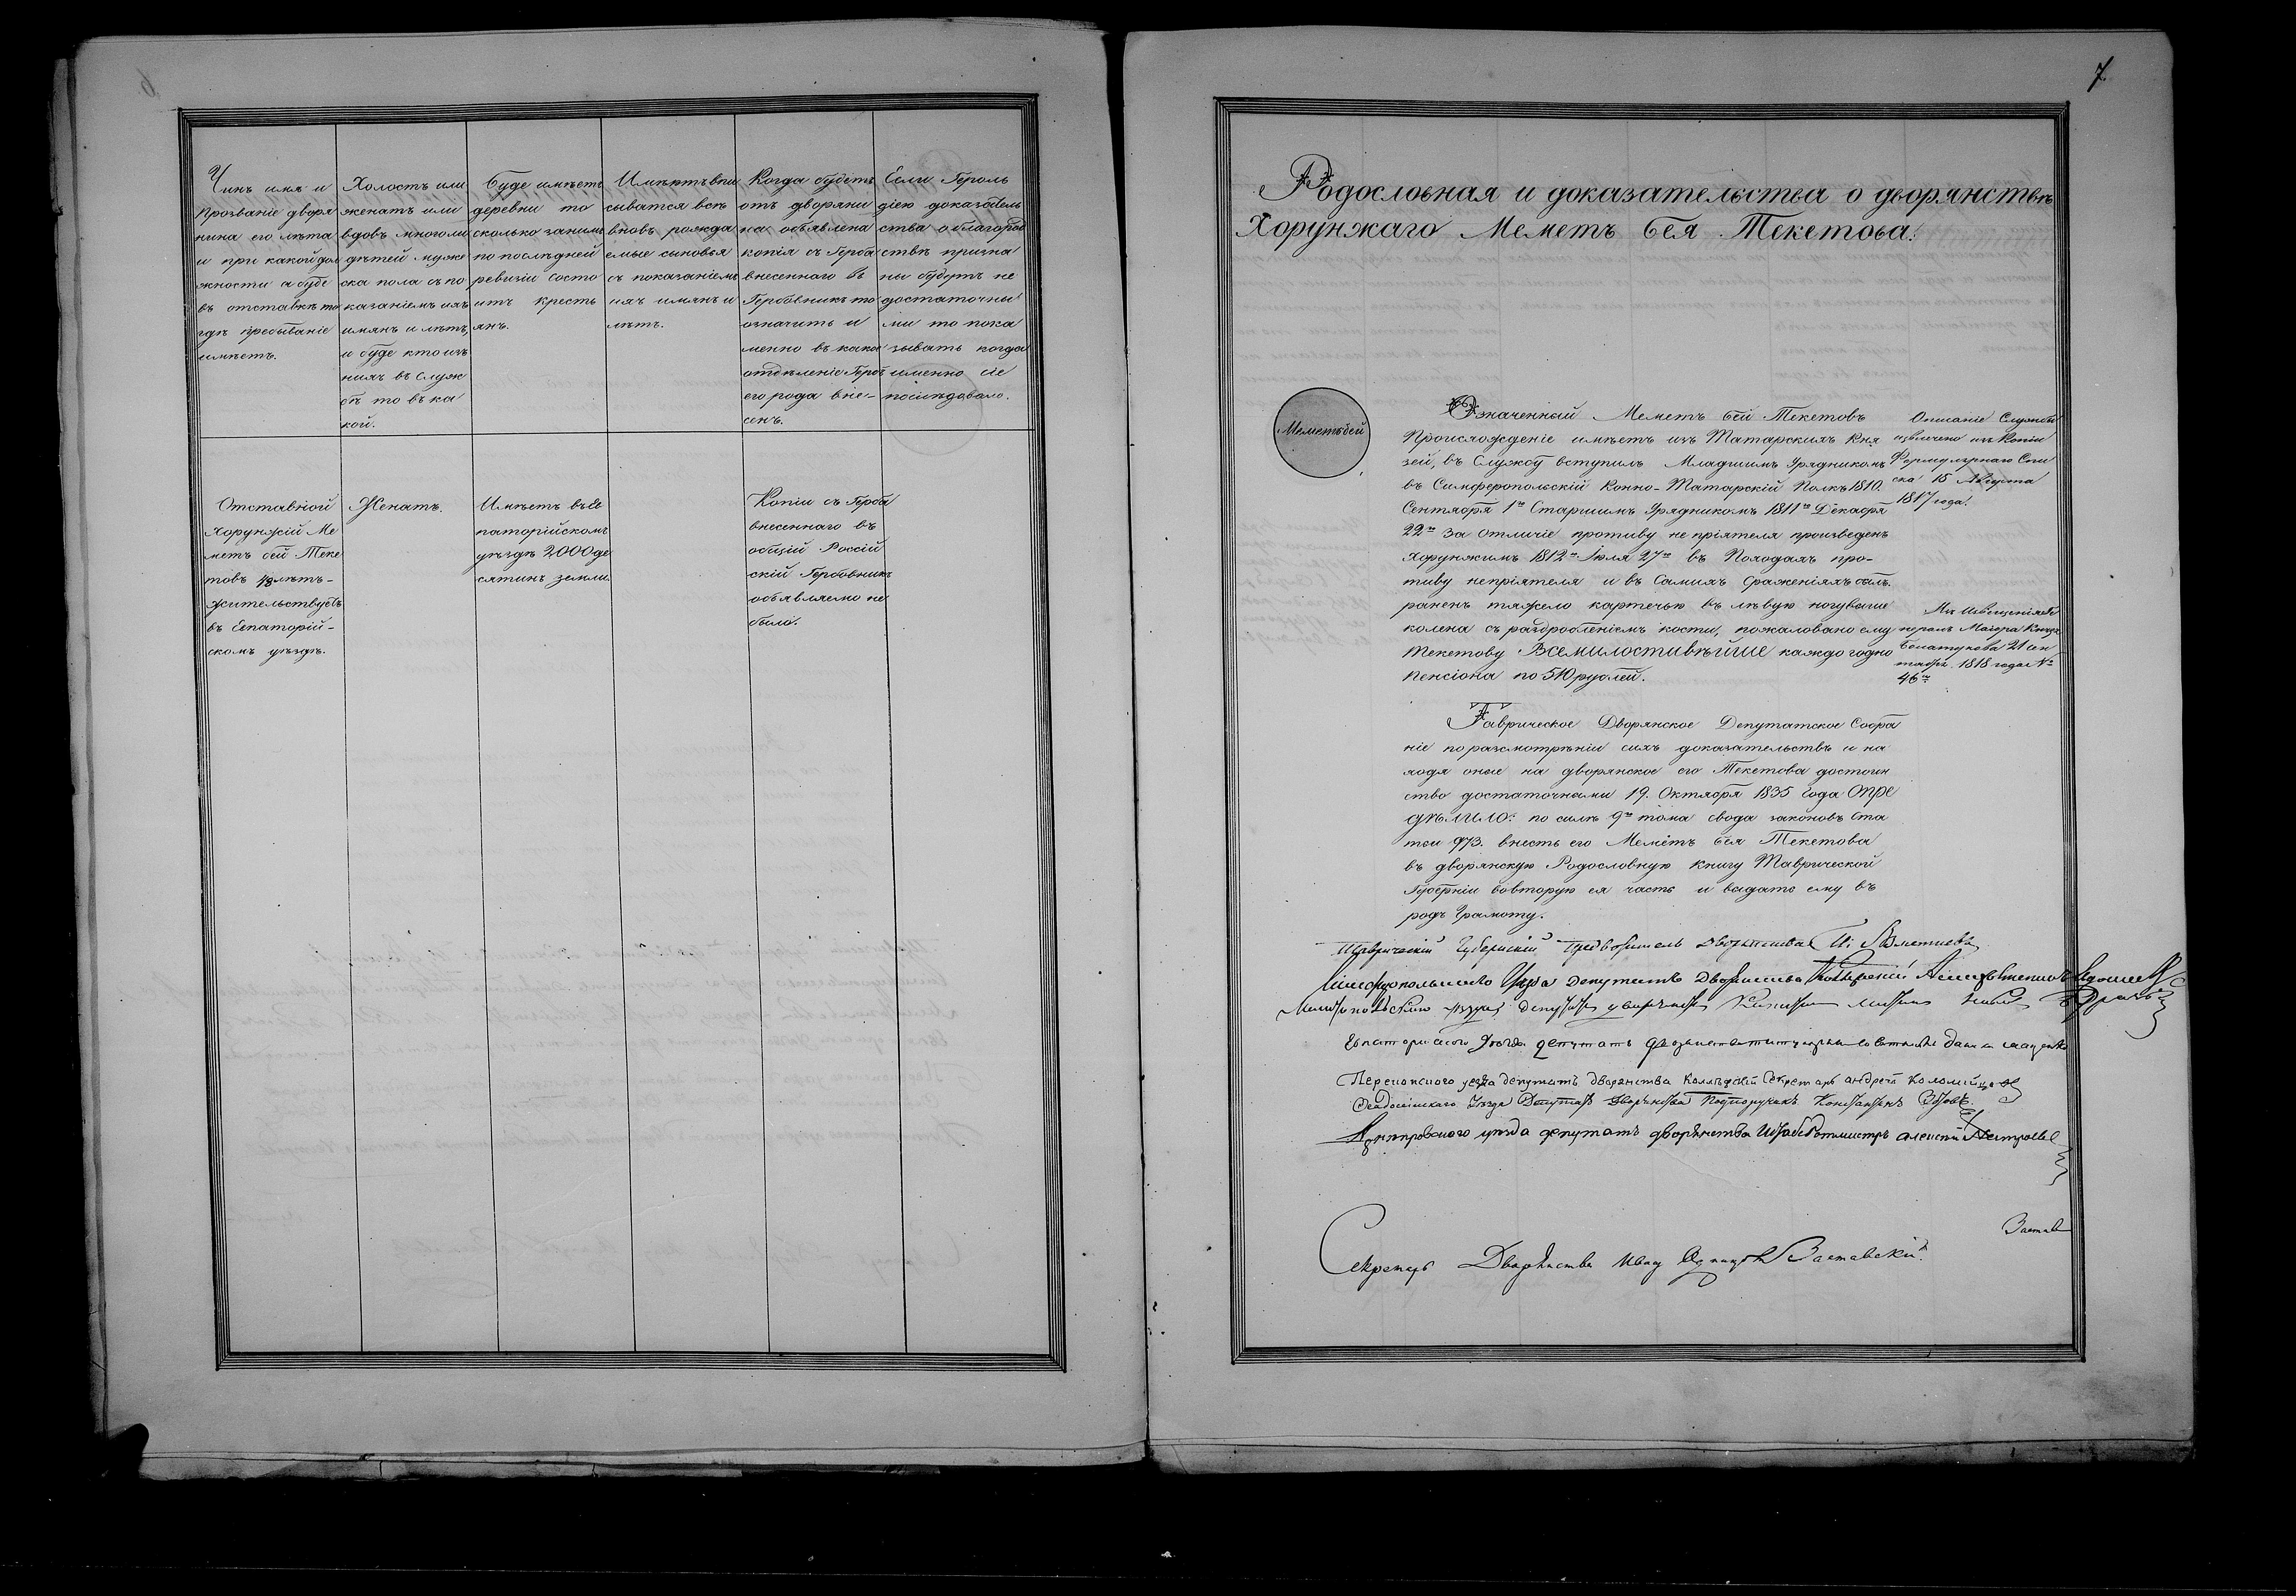 Чинъ имя и
прозваніе дворя
нина его лѣта
и при какой дол
жности а буде
въ отставкѣ то
гдѣ пребываніе
имѣетъ.
Холостъ или
женатъ или
вдовъ много ли
дѣтей муже
ска пола съ по
казаніемъ ихъ
имянъ и лѣтъ,
и буде кто изъ
нихъ въ служ
бѣ то въ ка
кой.
Буде имѣетъ
деревни то
сколько за нимъ
по послѣдней
ревизіи состо
итъ кресть
янъ.
Имѣютъ впи
сыватся всѣ
вновь рожда
емые сыновья
съ показаніемъ
ихъ имянъ и
лѣтъ.
Когда будетъ
отъ дворяни
на объявлена
копія съ Герба
внесеннаго въ
Гербовникъ то
означить и
менно въ како
отдѣленіе Герб
его рода вне-
сенъ.
Если Героль
діею доказатель
ства о благород
ствѣ призна
ны будутъ не
достаточны
ми то пока
зывать когда
именно сіе
послѣдовало.
Отставной
Хорунжій Ме
метъ бей Теке
товъ 48 лѣтъ-
жительствуетъ
въ Евпаторій-
скомъ уѣздѣ.
Женатъ.
Имѣетъ въ Ев
паторійскомъ
уѣздѣ 2000 де
сятинъ земли.
Копіи съ Герба
внесеннаго въ
общій Россій
скій Гербовникъ
объявляемо не
было.
7
Родословная и доказательства о дворянствѣ
Хорунжаго Меметъ бея Текетова.
Меметъ бей
Означенный Меметъ бей Текетовъ
Происхожденіе имѣетъ изъ Татарскихъ Кня
зей, въ Службу вступилъ Младшимъ Урядникомъ
въ Симферопольскій Конно-Татарскій Полкъ 1810.
Сентября 1го Старшимъ Урядникомъ 1811го Декабря
22го За отличіе противу непріятеля произведенъ
Хорунжимъ 1812го Іюля 27го въ Походахъ про-
тиву непріятеля и въ Самихъ Сраженіяхъ былъ.
раненъ тяжело картечью въ лѣвую ногу выше
колена съ раздробленіемъ кости, пожаловано ему
Текетову Всемилостивѣйше каждогодно
пенсіона по 510 рублей.
Описаніе Службы
извлечено изъ Копіи
Формулярнаго Спи
ска 15 Августа
1817 года.
Маіора Князя
21 сен
тября 1818 года №
46й
Таврическое Дворянское Депутатское Собра
ніе по разсмотрѣніи сихъ доказательствъ и на
ходя оные на дворянское его Текетова достоин
ство достаточными 19. Октября 1835 года Опре
дѣлило: по силѣ 9го тома свода законовъ Ста
тьи 973. внесть его Меметъ бея Текетова
въ дворянскую Родословную книгу Таврической
Губерніи во вторую ея часть и выдать ему въ
родъ Грамоту.
Таврическій Губернскій Предводитель Дворянства
Симферопольскаго Уѣзда депутатъ Дворянства
Мелитопольскаго уѣзда депутатъ дворянства
Евпаторійскаго Уѣзда депутатъ дворянства
Перекопскаго уезда депутатъ дворянства Коллежскій Секретарь андрей Коломийцовъ
Феодосійскаго Уѣзда Депутатъ Дворянства Подпоручикъ Константинъ
Днепровского уезда депутатъ дворянства Штабсъ Ротмистръ алексей
Секретарь Дворянства Иванъ Заставскій.